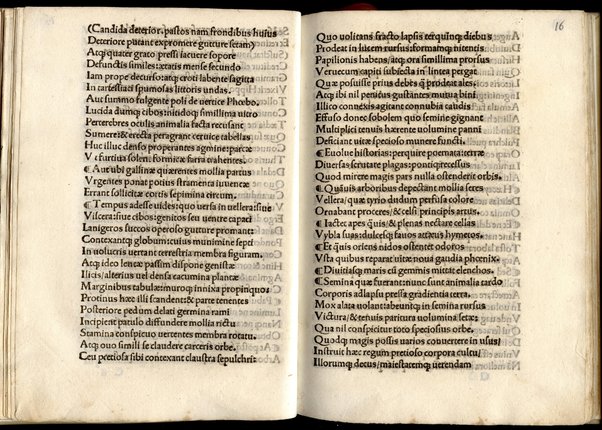 (Candida deterior. pastos nam frondibus huius
Deteriore putant expromere gutture setam)
Atq; quater grato pressi iacuere sopore
Defunctis similes: ætatis mense secundo
Iam prope decurso: atq; croti labente sagitta
In tartessiaci spumosas littoris undas.
Aut summo fulgente poli de uertice Phœbo.
Lucida dumq; cibos: nitidoq; simillima uitro
Perterebres oculis animalia facta recusant
Sumere: & erecta peragrant ceruice tabellas
Huc illuc denso properantes agmine: parcæ
Vt furtiua solent formicæ farra trahentes.
¶ Aut ubi gallinæ quærentes mollia partus
Vrgentes ponat potius stramenta iuuencæ
Errant sollicitæ cortis septima circum.
¶ Tempus adesse uides quo uersa in uellera: siue
Viscera: siue cibos: genitos seu uentre capaci
Lanigeros succos operoso gutture promant:
Contexantq; globum: cuius munimine septi
In uolucris uertant terrestria membra figuram.
Atq; ideo lentæ passim dispone genistæ
Ilicis/alterius uel densa cacumina plantæ
Marginibus tabulæ: muroq; innixa propinquo:
Protinus hæc illi scandent: & parte tenentes
Posteriore pedum delati germina rami
Incipient patulo diffundere mollia rictu
Stamina conspicuo uertentes membra rotatu.
Atq; ouo simili se claudere carceris orbe.
Ceu pretiosa sibi contexant claustra sepulchri:
16
Quo uolitans fracto lapsis terquinq; diebus
Prodeat in lucem rursus: formamq; nitentis
Papilionis habens/atq; ora simillima prorsus
Veruecum capiti subiecta in lintea pergat
Quæ posuisse prius debes q̃ prodeat ales.
Atq; ibi nil penitus gustantes mutua bini
Illico connexis agitant connubia caudis
Effuso donec sobolem quo semine gignant
Multiplici tenuis hærente uolumine panni
Deficiant uitæ specioso munere functi.
¶ Euolue historias: perquire poemata: terræ
Diuersas scrutate plagas: pontiq; recessus
Quod mirere magis pars nulla ostenderit orbis.
¶ Quãuis arboribus depectant mollia seres
Vellera/quæ tyrio dudum perfusa colore
Ornabant proceres/& celsi principis artus.
¶ Iactet apes q̃uis/& plenas nectare cellas
Hybla suas: dulcesq; fauos actæus hymetos.
¶ Et q̃uis oriens nidos ostentet odoros
Vsta quibus reparat uitæ noua gaudia phœnix.
¶ Diuitiasq; maris cũ gemmis mittat: elenchos.
¶ Semina quæ fuerant: nunc sunt animalia tardo
Corporis adlapsu pressa gradientia terra.
Mox alata uolant: abeuntq; in semina rursus
Victura/& tenuis paritura uolumina setæ:
Qua nil conspicitur toto speciosius orbe.
Quodq; magis possis uarios conuertere in usus/
Instruit hæc regum pretioso corpora cultu/
Illorumq; decus/maiestatemq; uerendam